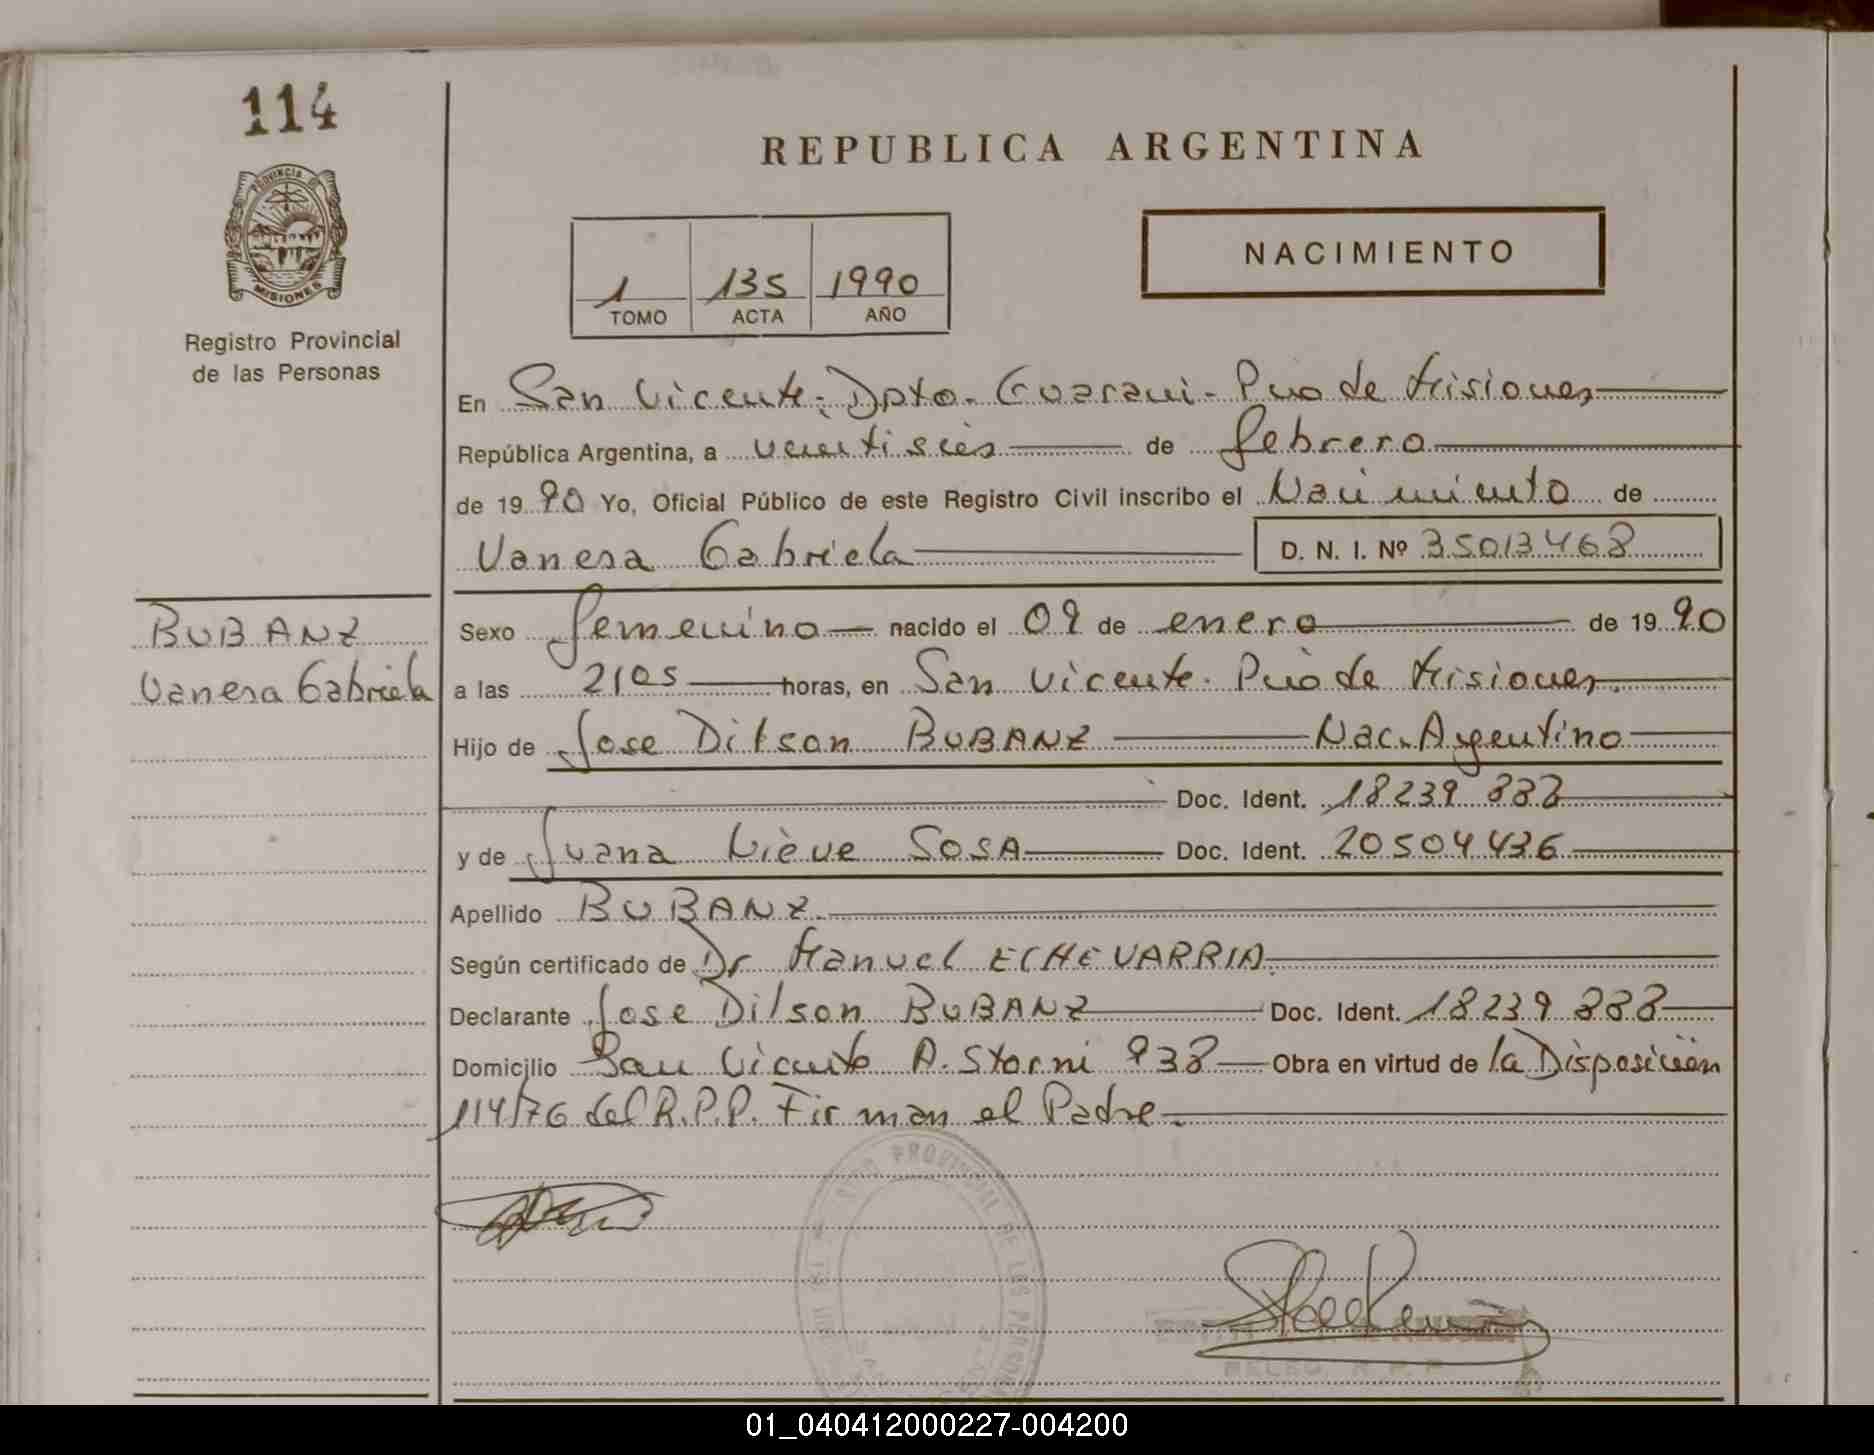 114
REPUBLICA ARGENTINA
PROVINCIA DE
MISIONES
Registro Provincial
de las Personas
1 135 1990
TOMO ACTA AÑO
NACIMIENTO
En San Vicente - Dpto. Guarani - Pcia de Misiones
República Argentina, a veintiseis de febrero
de 1990 Yo, Oficial Público de este Registro Civil inscribo el Nacimiento de
Vanesa Gabriela D. N. I. Nº 35013468
BUBANZ
Vanesa Gabriela
Sexo femenino nacido el 09 de enero de 1990
a las 2105 horas, en San Vicente. Pcia de Misiones.
Hijo de Jose Dilson BUBANZ Nac. Argentino
Doc. Ident. 18239 888
y de Juana Nieve SOSA Doc. Ident. 20504436
Apellido BUBANZ.
Según certificado de Dr Manuel ECHEVARRIA.
Declarante Jose Dilson BUBANZ Doc. Ident. 18239 888
Domicilio San Vicente A. Storni 938 Obra en virtud de la Disposición
114/76 del R.P.P. Firman el Padre.
PROVINCIAL DE LAS
01_040412000227-004200